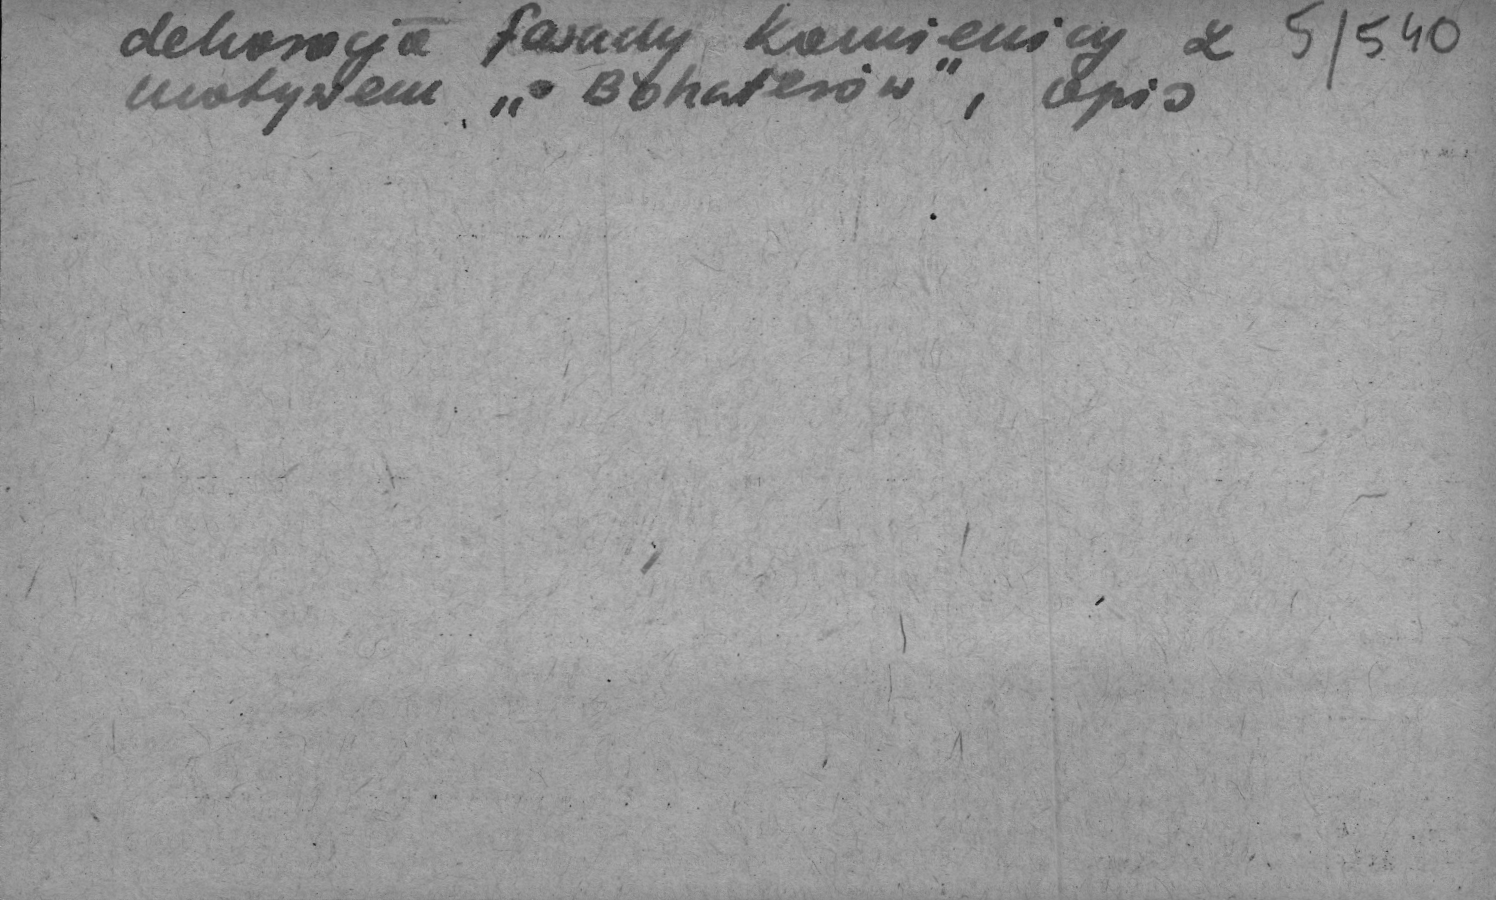 dekoracja fasady kamienicy z 5/540
motywem „9 Bohaterów”, opis